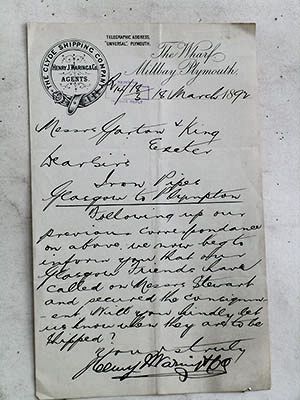 THE CLYDE SHIPPING COMPANY
HENRY J. WARING & CO.
AGENTS.
TELEGRAPHIC ADDRESS,
"UNIVERSAL" PLYMOUTH.
The Wharf
Millbay, Plymouth.
18 March 1892
Messrs Garton & King
Exeter
Dear Sirs
Iron Pipes
Glasgow to Plympton
Following up our
previous correspondence
on above, we now beg to
inform you that our
Glasgow friends have
called on Messrs Stewart
and secured the consignm-
ent. Will you kindly let
us know when they are to be
shipped?
Yours truly
Henry J Waring & Co